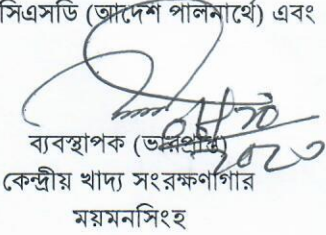 সিএসডি (আদেশ পালনার্থে) এবং
ব্যবস্থাপক (ভারপ্রাপ্ত)
কেন্দ্রীয় খাদ্য সংরক্ষণাগার
ময়মনসিংহ